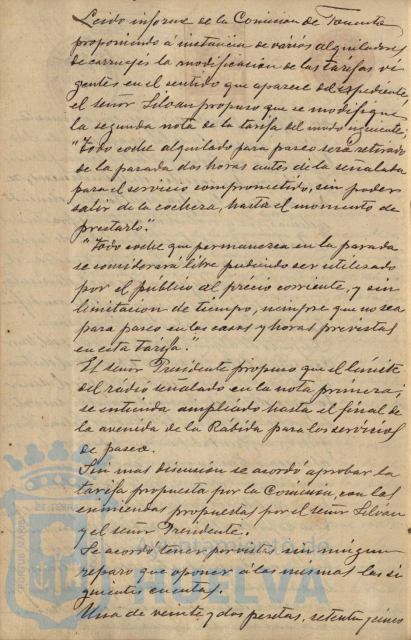 Leido informe de la Comision de Fomento
proponiendo á instancia de varios alquiladores
de carruajes la modificacion de las tarifas vi
gentes en el sentido que aparece del expediente,
el señor Silvan propuso que se modifique
la segunda nota de la tarifa del modo siguiente,
"Todo coche alquilado para paseo será retirado
de la parada dos horas antes de la señalada
para el servicio comprometido, sin poder
salir de la cochera, hasta el momento de
prestarlo".
"Todo coche que permanezca en la parada
se considerará libre pudiendo ser utilizado
por el publico al precio corriente, y sin
limitacion de tiempo, siempre que no sea
para paseo en los casos y horas previstas
en esta tarifa".
El señor Presidente propuso que el límite
del rádio señalado en la nota primera;
se entienda ampliado hasta el final de
la avenida de la Rabida para los servicios
de paseo.
Sin mas discusion se acordó aprobar la
tarifa propuesta por la Comision, con las
enmiendas propuestas por el señor Silvan
y el señor Presidente.
Se acordó tener por vistas sin ningun
reparo que oponer á las mismas las si
guientes cuentas.
Una de veinte y dos pesetas, setenta y cinco
HUELVA